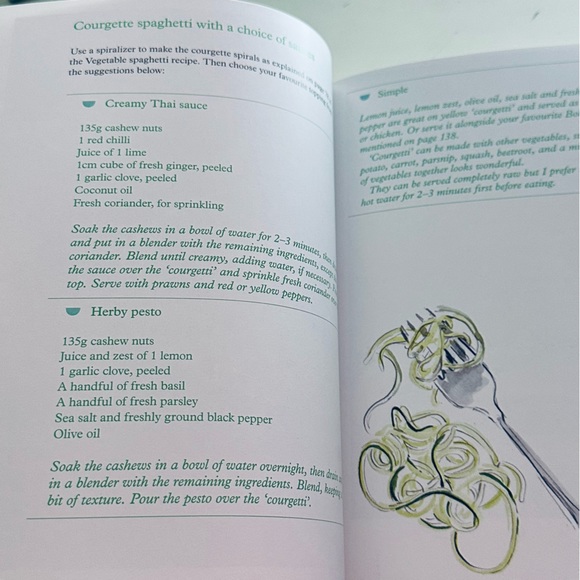 Courgette spaghetti with a choice of
Use a spiralizer to make the courgette spirals as explained on page
the Vegetable spaghetti recipe. Then choose your favourite topping
the suggestions below:
Creamy Thai sauce
135g cashew nuts
1 red chilli
Juice of 1 lime
1cm cube of fresh ginger, peeled
1 garlic clove, peeled
Coconut oil
Fresh coriander, for sprinkling
Soak the cashews in a bowl of water for 2–3 minutes, then
and put in a blender with the remaining ingredients, except
coriander. Blend until creamy, adding water, if necessary.
the sauce over the ‘courgetti’ and sprinkle fresh coriander
top. Serve with prawns and red or yellow peppers.
Herby pesto
135g cashew nuts
Juice and zest of 1 lemon
1 garlic clove, peeled
A handful of fresh basil
A handful of fresh parsley
Sea salt and freshly ground black pepper
Olive oil
Soak the cashews in a bowl of water overnight, then drain
in a blender with the remaining ingredients. Blend, keeping
bit of texture. Pour the pesto over the ‘courgetti’.
Simple
Lemon juice, lemon zest, olive oil, sea salt and fresh
pepper are great on yellow ‘courgetti’ and served as
or chicken. Or serve it alongside your favourite
mentioned on page 138.
‘Courgetti’ can be made with other vegetables,
potato, carrot, parsnip, squash, beetroot, and a
of vegetables together looks wonderful.
They can be served completely raw but I prefer
hot water for 2–3 minutes first before eating.